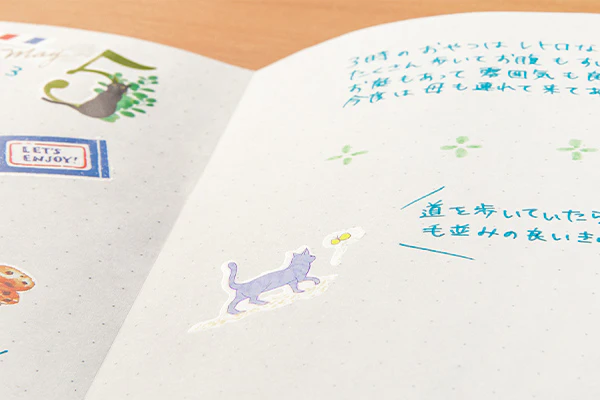 May
5
3
LET'S
ENJOY!
3時のおやつは レトロな
たくさん歩いてお腹も
お庭もあって 雰囲気も良
今度は 母も連れて来てあ
道を歩いていたら
毛並みの良いき